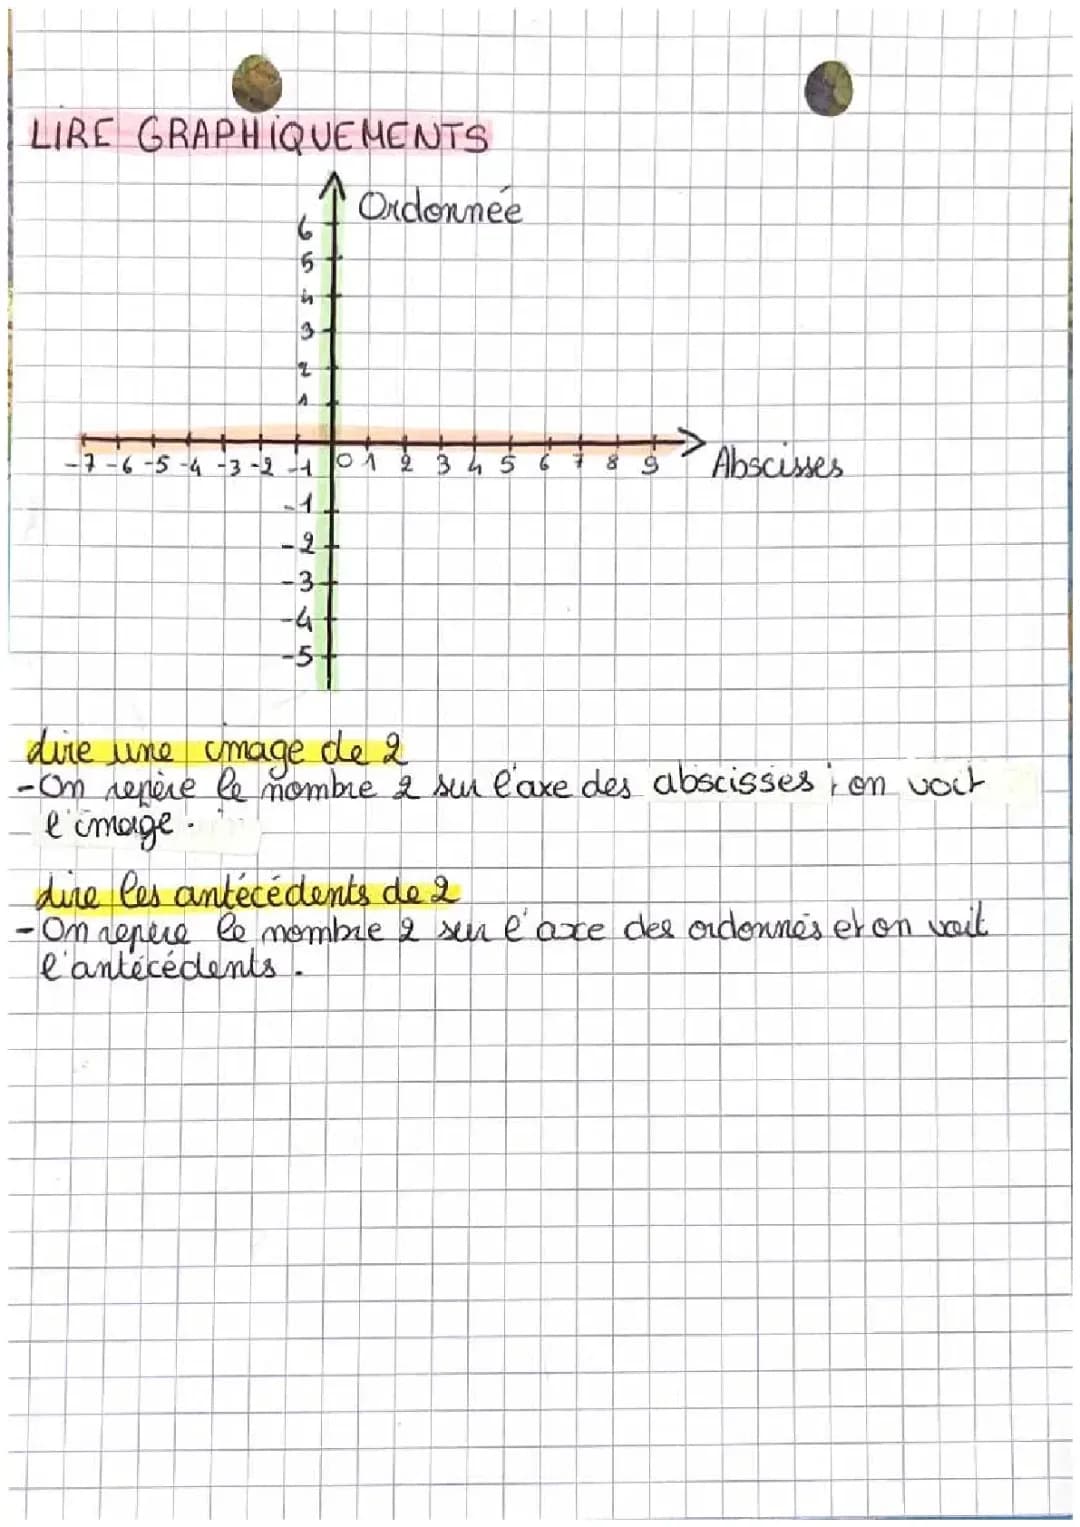 LIRE GRAPHIQUEMENTS
Ordonnée
6
5
4
3
2
1
-7 -6 -5 -4 -3 -2 -1 0 1 2 3 4 5 6 7 8 9 Abscisses
-1
-2
-3
-4
-5
dire une image de 2
-On repère le nombre 2 sur l'axe des abscisses ; on voit
l'image.
dire les antécédents de 2
-On repère le nombre 2 sur l'axe des ordonnés et on voit
l'antécédents.